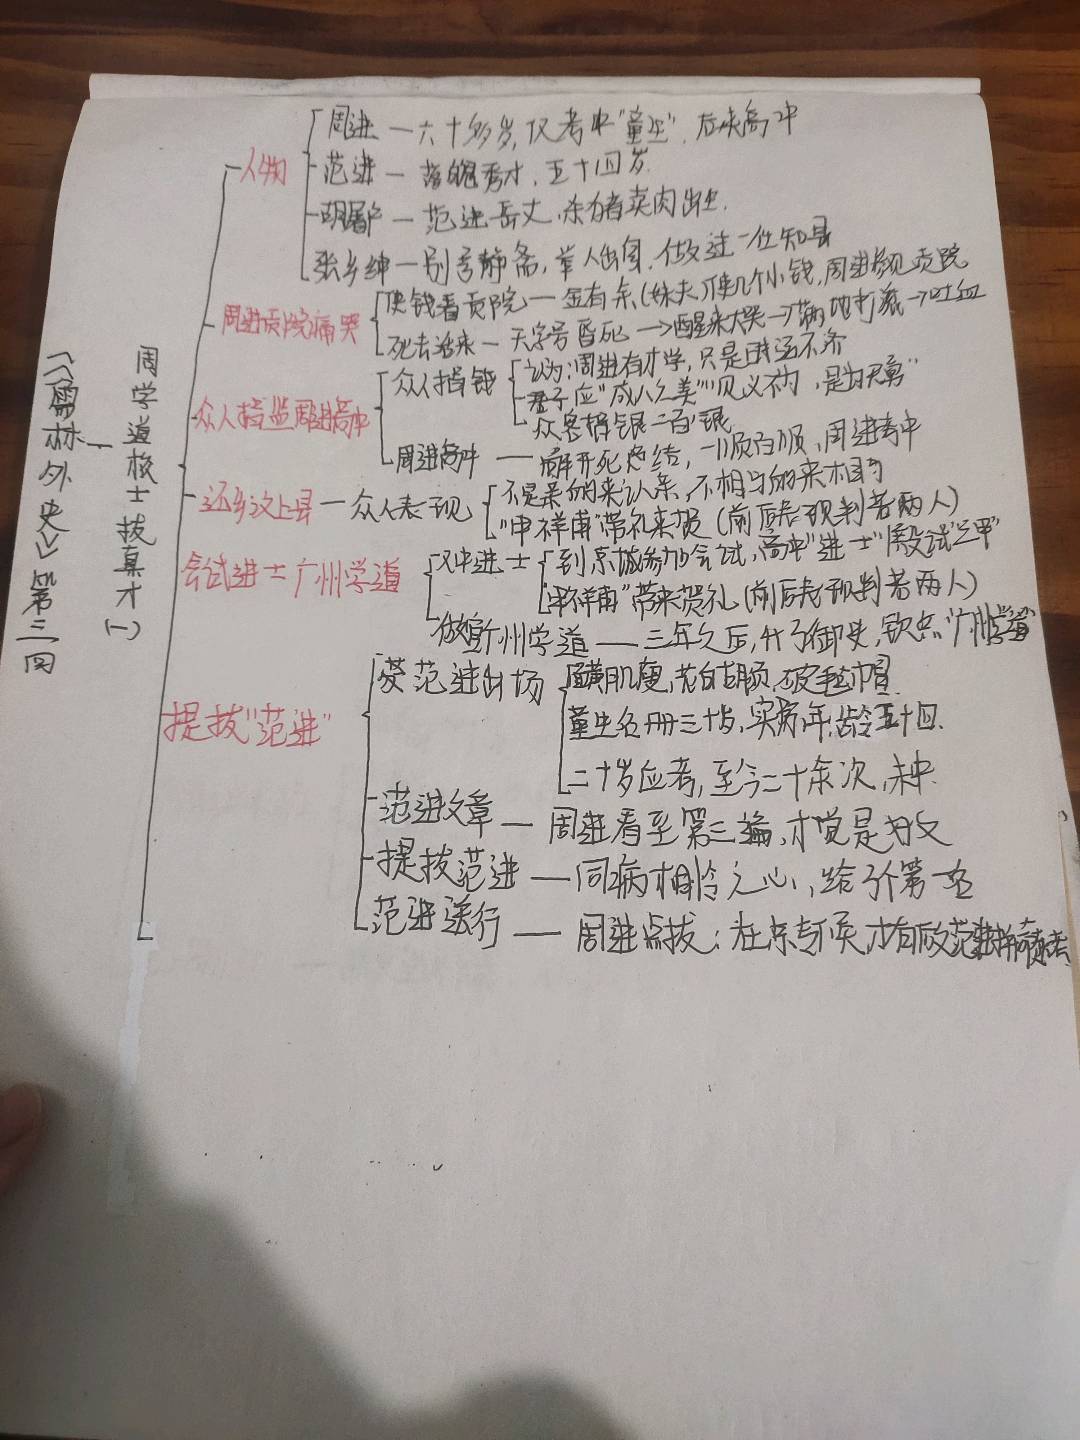 《儒林外史》第三回
周学道校士拔真才(一)
人物
周进 — 六十多岁,仅考中"童生",后来高中
范进 — 落魄秀才,五十四岁
胡屠户 — 范进岳丈,杀猪卖肉出生.
张乡绅 — 别号静斋,举人出身,做过一任知县
周进贡院痛哭
使钱看贡院 — 金有余(妹夫)使几个小钱,周进参见贡院
死去活来 — 天字号昏死→醒来大哭→满地打滚→吐血
众人捐监周进高中
众人捐钱
认为:周进有才学,只是时运不济
君子应"成人之美""见义不为,是为无勇"
众客捐银二百银
周进高中 — 解开死疙结,一顺百顺,周进考中
还乡汶上县 — 众人表现
不是亲的来认亲,不相与的来相与
"申祥甫"带礼来贺(前后表现判若两人)
会试进士广州学道
又中进士
到京城参加会试,高中"进士"殿试"三甲"
"申祥甫"带来贺礼(前后表现判若两人)
广州学道 — 三年之后,升了御史,钦点"广州学道"
提拔"范进"
范进出场
面黄肌瘦,花白胡须,破毡帽
童生名册三十岁,实际年龄五十四.
二十岁应考,至今二十余次,未中.
范进文章 — 周进看至第三遍,才觉是好文
提拔范进 — 同病相怜之心,给了个第一名
范进送行 — 周进点拨:在京专候,才有后文范进